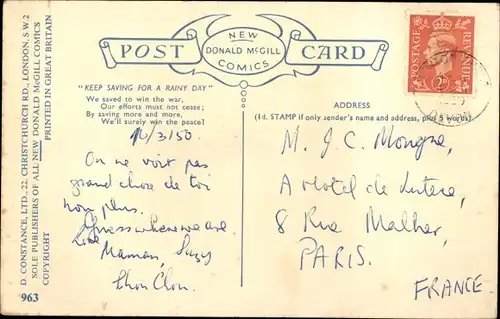 NEW
POST DONALD McGILL CARD
COMICS
POSTAGE REVENUE
2D
"KEEP SAVING FOR A RAINY DAY"
We saved to win the war,
Our efforts must not cease;
By saving more and more,
We'll surely win the peace!
ADDRESS
(1d. STAMP if only sender's name and address, plus 5 words)
14/3/50.
On ne voit pas
grand chose de toi
non plus.
Guess where we are.
Love
Maman, Suzy
Chou Clou.
M. J. C. Mongne,
A Hotel de Lutece,
8 Rue Malher,
PARIS.
FRANCE.
D. CONSTANCE, LTD., 22, CHRISTCHURCH RD., LONDON, S.W.2
SOLE PUBLISHERS OF ALL NEW DONALD McGILL COMICS
COPYRIGHT PRINTED IN GREAT BRITAIN
963